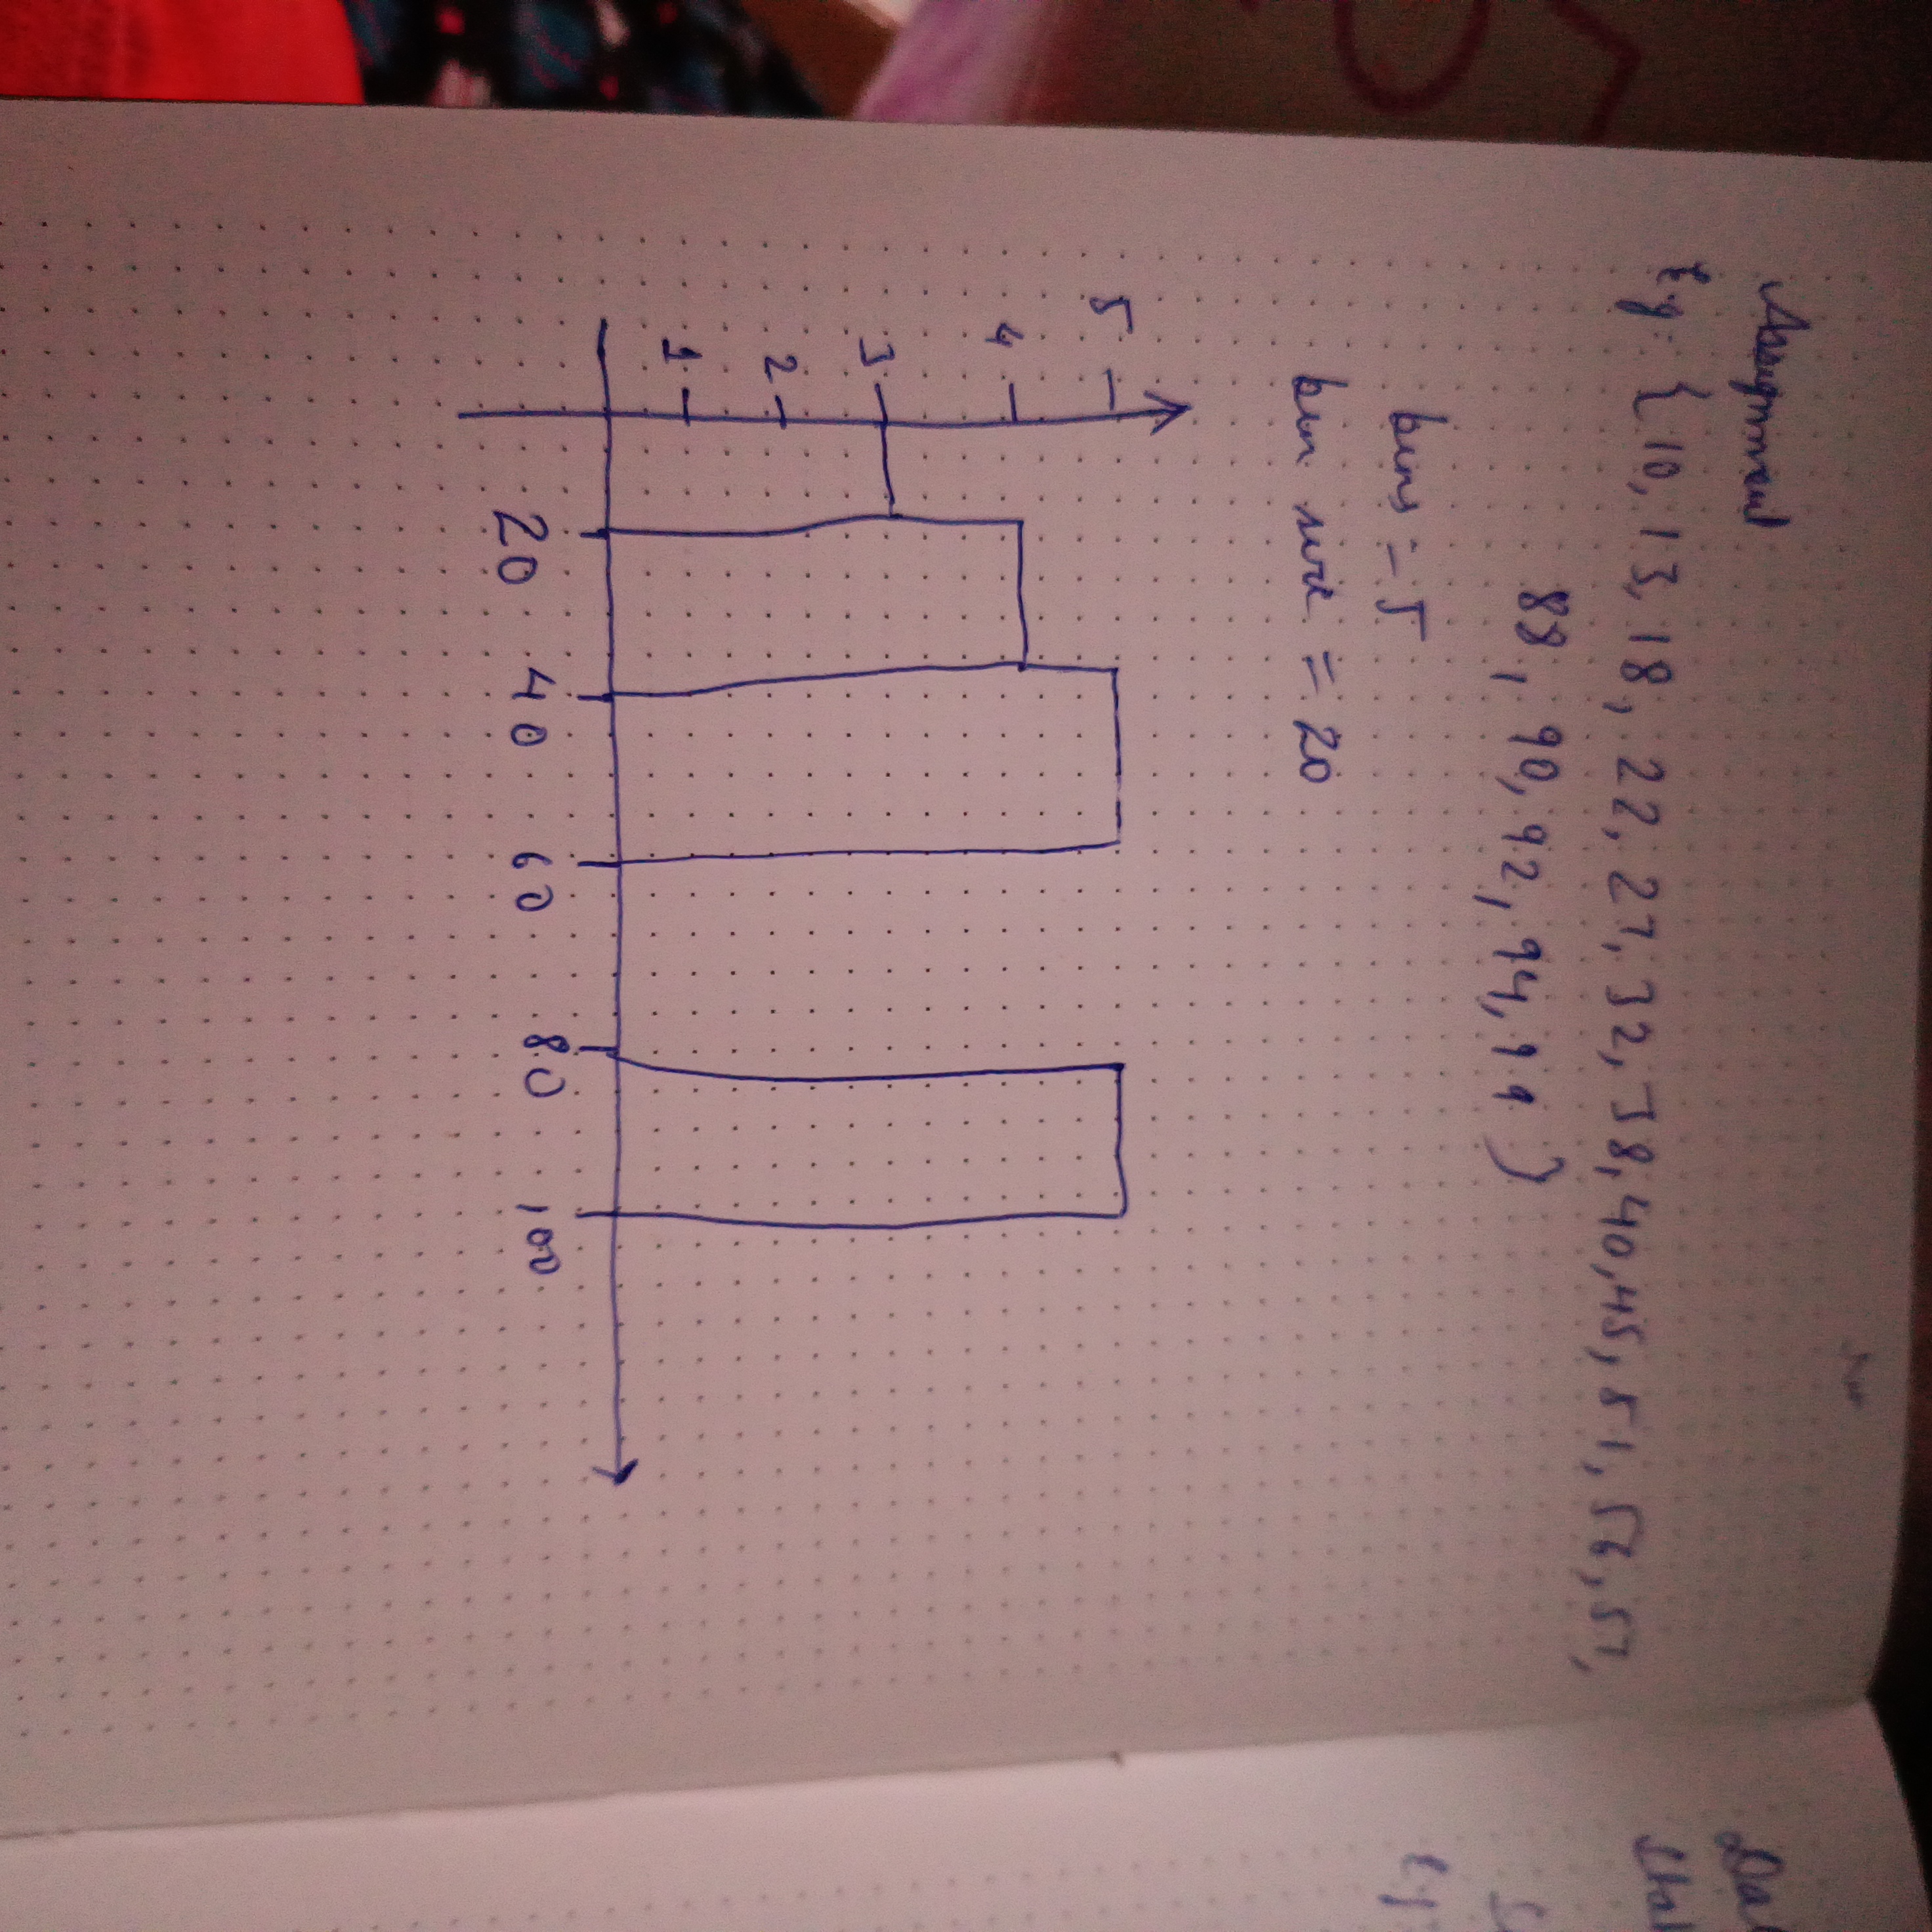 Assignment
Eg. {10, 13, 18, 22, 27, 32, 38, 40, 45, 51, 56, 57,
88, 90, 92, 94, 99}
bins = 5
bin size = 20
5
4
3
2
1
20 40 60 80 100
Eg